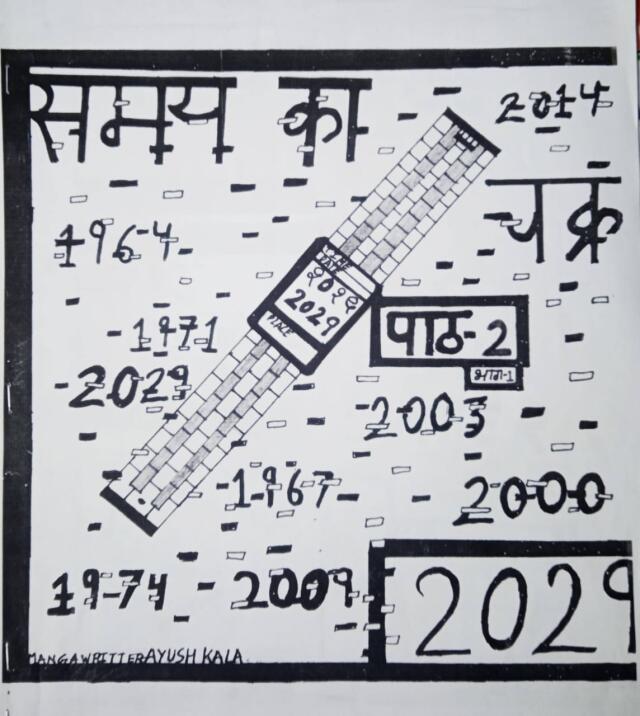 समय का
2014
चक्र
1964
1971
2029
2029
TIME
पाठ-2
भाग-1
2003
1967
2000
1974 - 2009
2029
MANGAWRITTER AYUSH KALA